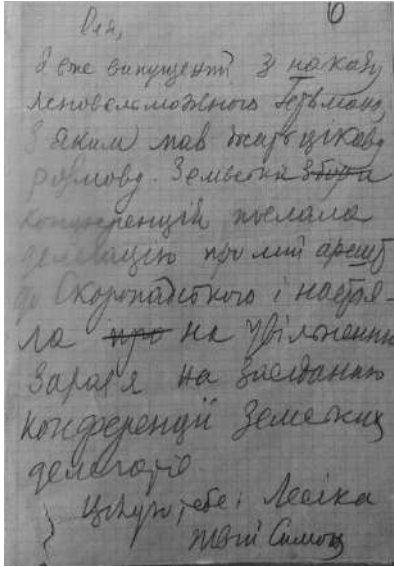 6
Оля,
Я вже випущений з наказу
ясновельможного Гетьмана,
З яким мав дуже цікаву
розмову. Земська збора
конференція послала
делегацію про мій арешт
до Скоропадського і настоя-
ла про на увільненню
Зараз я на засіданню
конференції Земських
делегатів
Цілую тебе і Лесіка
твій Симон